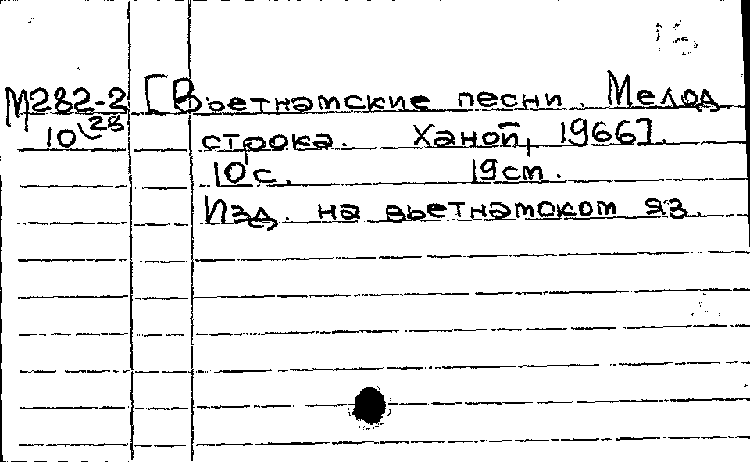 15
М282-2 [Вьетнамские песни. Мелод
10 28 строка. Ханой, 1966].
10 с. 19 cm.
Изд. на вьетнамском яз.